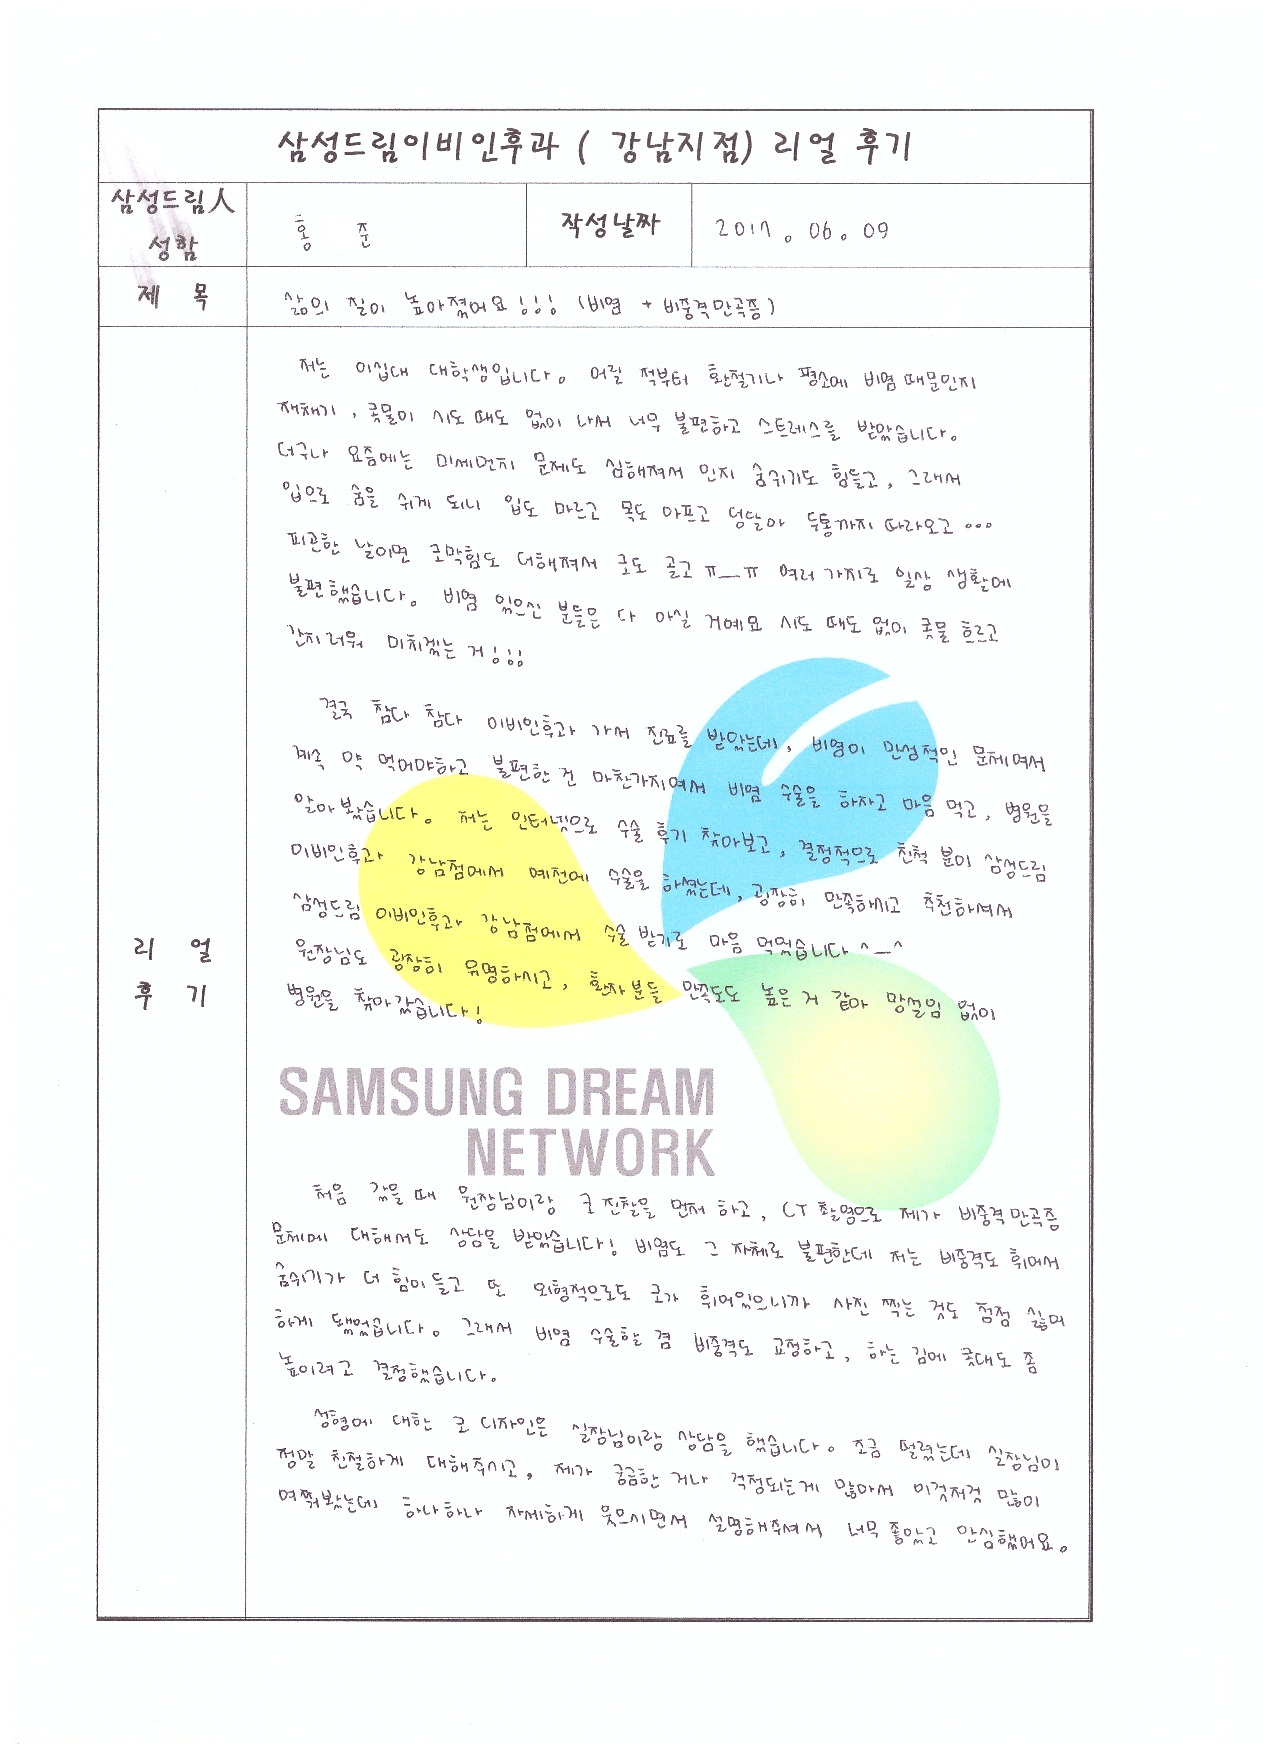 삼성드림이비인후과 ( 강남지점) 리얼 후기
삼성드림人
성함
홍 준
작성날짜
2017. 06. 09
제 목
삶의 질이 높아졌어요!!! (비염 + 비중격만곡증)
저는 이십대 대학생입니다. 어릴 적부터 환절기나 평소에 비염 때문인지
재채기, 콧물이 시도 때도 없이 나서 너무 불편하고 스트레스를 받았습니다.
더구나 요즘에는 미세먼지 문제도 심해져서 인지 숨쉬기도 힘들고, 그래서
입으로 숨을 쉬게 되니 입도 마르고 목도 아프고 덩달아 두통까지 따라오고...
피곤한 날이면 코막힘도 더해져서 코도 골고 ㅠ_ㅠ 여러 가지로 일상 생활에
불편했습니다. 비염 있으신 분들은 다 아실 거예요 시도 때도 없이 콧물 흐르고
간지러워 미치겠는 거!!!
결국 참다 참다 이비인후과 가서 진료를 받았는데, 비염이 만성적인 문제여서
계속 약 먹어야하고 불편한 건 마찬가지여서 비염 수술을 하자고 마음 먹고, 병원을
알아봤습니다. 저는 인터넷으로 수술 후기 찾아보고, 결정적으로 친척 분이 삼성드림
이비인후과 강남점에서 예전에 수술을 하셨는데, 굉장히 만족하시고 추천하셔서
삼성드림 이비인후과 강남점에서 수술 받기로 마음 먹었습니다 ^_^
원장님도 굉장히 유명하시고, 환자분들 만족도도 높은 거 같아 망설임 없이
병원을 찾아갔습니다!
리 얼
후 기
SAMSUNG DREAM
NETWORK
처음 갔을 때 원장님이랑 코 진찰을 먼저 하고, CT 촬영으로 제가 비중격만곡증
문제에 대해서도 상담을 받았습니다! 비염도 그 자체로 불편한데 저는 비중격도 휘어서
숨쉬기가 더 힘이 들고 또 외형적으로도 코가 휘어있으니까 사진 찍는 것도 점점 싫어
하게 됐었습니다. 그래서 비염 수술할 겸 비중격도 교정하고, 하는 김에 콧대도 좀
높이려고 결정했습니다.
성형에 대한 코 디자인은 실장님이랑 상담을 했습니다. 조금 떨렸는데 실장님이
정말 친절하게 대해주시고, 제가 궁금한 거나 걱정되는게 많아서 이것저것 많이
여쭤봤는데 하나하나 자세하게 웃으시면서 설명해주셔서 너무 좋았고 안심했어요.